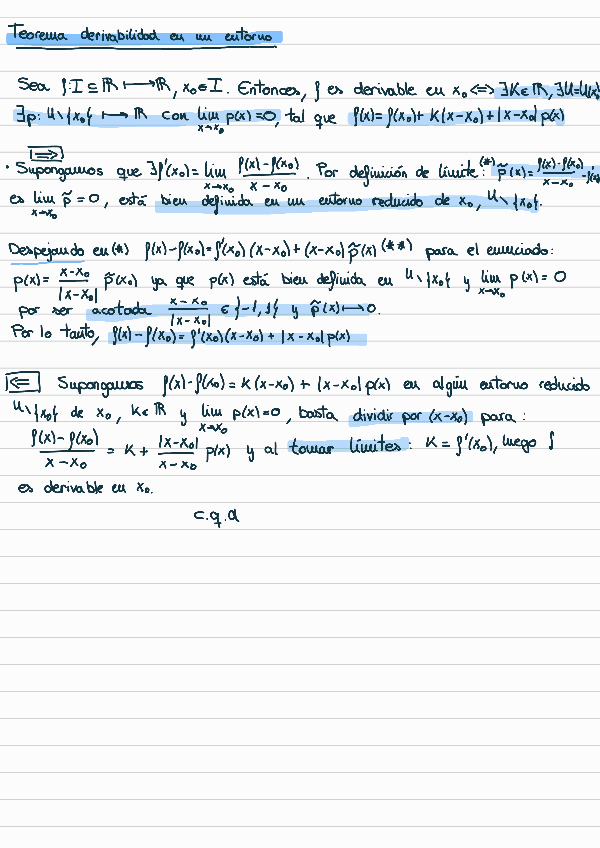 Teorema derivabilidad en un entorno
Sea f: I ⊆ ℝ ⟼ ℝ, x₀ ∈ I. Entonces, f es derivable en x₀ <=> ∃K∈ℝ, ∃U=U(x₀)
∃p: U\{x₀} ⟼ ℝ con lim_{x→x₀} p(x)=0, tal que f(x)=f(x₀)+K(x-x₀)+|x-x₀|p(x)
=>
· Supongamos que ∃f'(x₀)= lim_{x→x₀} (f(x)-f(x₀))/(x-x₀). Por definición de límite: (*) p̃(x)= (f(x)-f(x₀))/(x-x₀) - f'(x₀)
es lim_{x→x₀} p̃ = 0, está bien definida en un entorno reducido de x₀, U\{x₀}.
Despejando en (*) f(x)-f(x₀)=f'(x₀)(x-x₀)+(x-x₀)p̃(x) (**) para el enunciado:
p(x)= (x-x₀)/|x-x₀| p̃(x₀) ya que p(x) está bien definida en U\{x₀} y lim_{x→x₀} p(x)=0
por ser acotada (x-x₀)/|x-x₀| ∈ {-1,1} y p̃(x)⟼0.
Por lo tanto, f(x)-f(x₀)=f'(x₀)(x-x₀)+|x-x₀|p(x)
<= Supongamos f(x)-f(x₀)=K(x-x₀)+|x-x₀|p(x) en algún entorno reducido
U\{x₀} de x₀, K∈ℝ y lim_{x→x₀} p(x)=0, basta dividir por (x-x₀) para:
(f(x)-f(x₀))/(x-x₀) = K + |x-x₀|/(x-x₀) p(x) y al tomar límites: K=f'(x₀), luego f
es derivable en x₀.
c.q.d